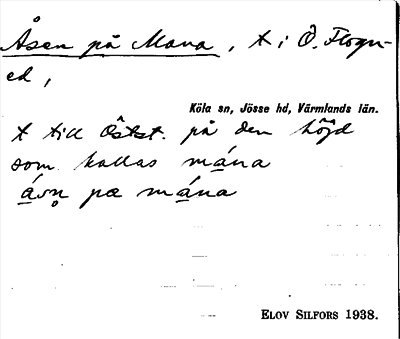 Åsen på Mana, t i Ö. Flogn-
ed,
Köla sn, Jösse hd, Värmlands län.
t till Östst. på den höjd
som kallas mána
åsn̥ pæ mána
ELOV SILFORS 1938.